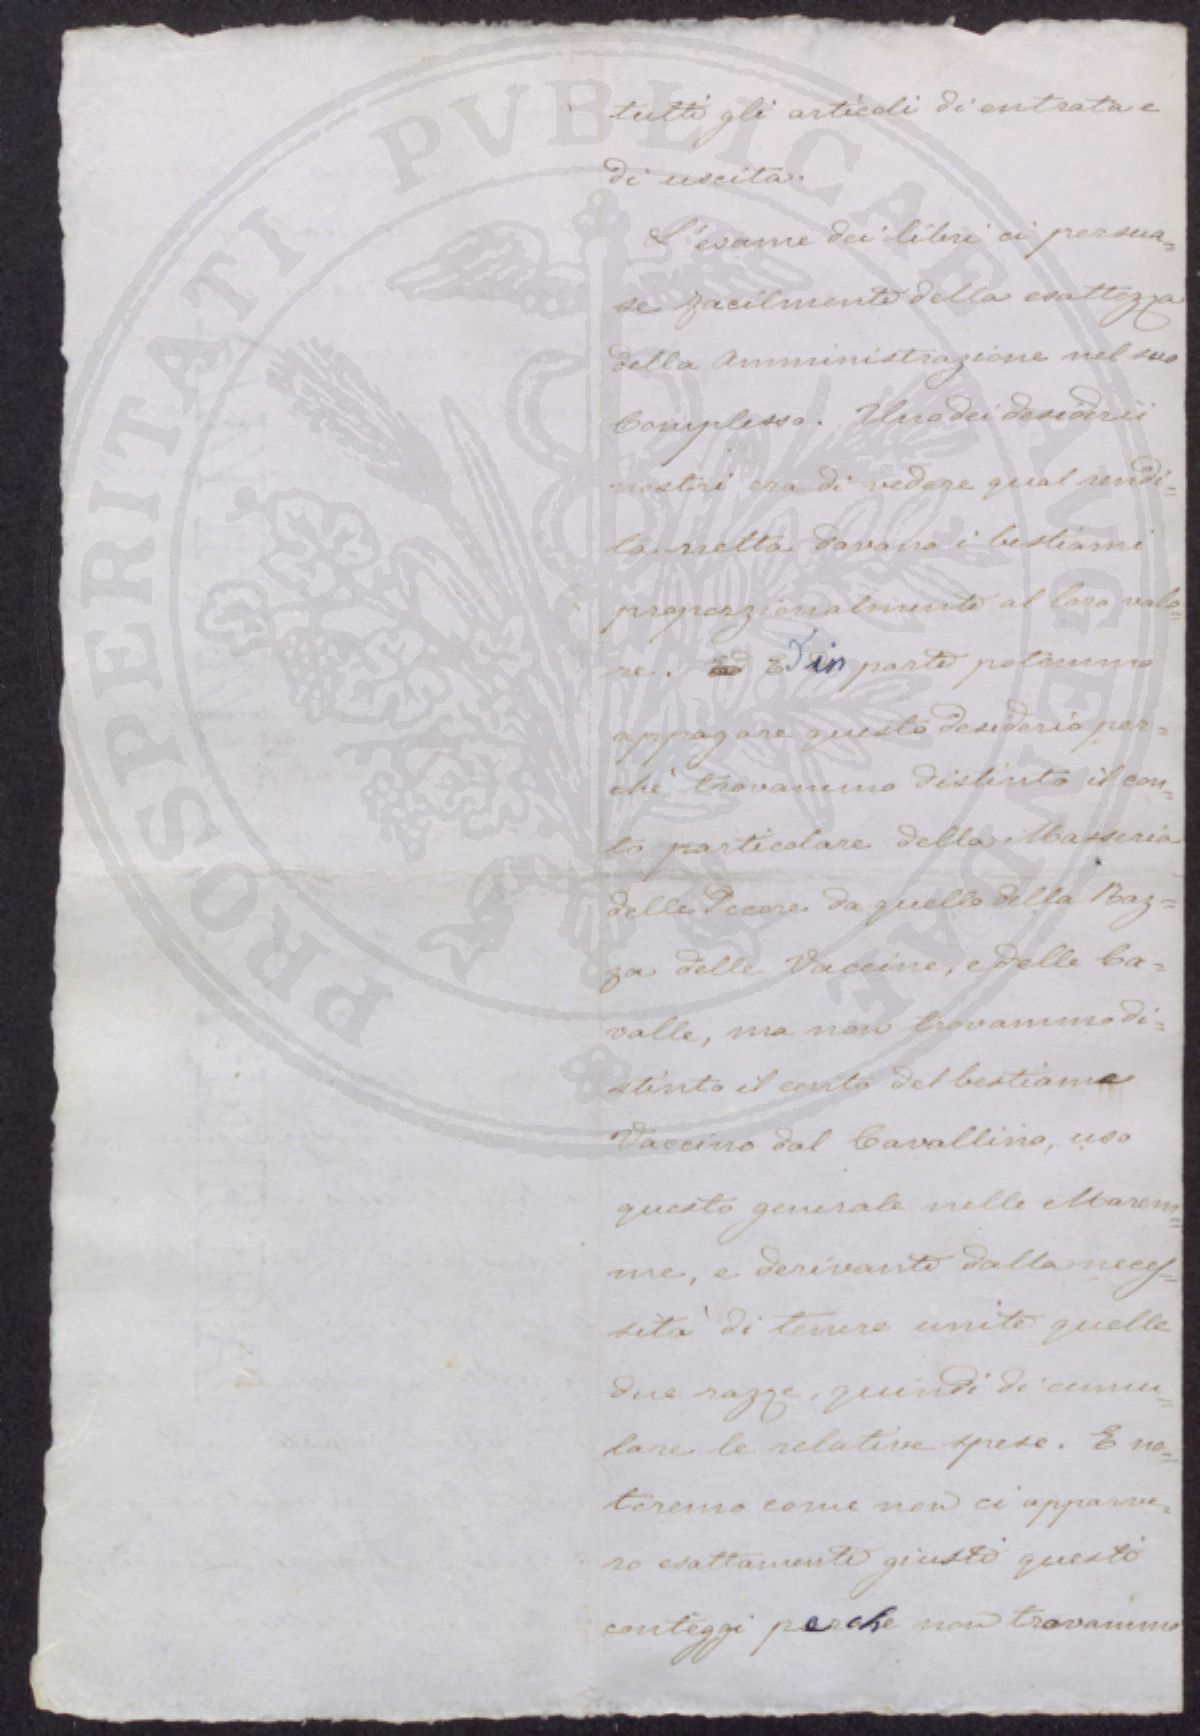 tutti gli articoli di entrata e
di uscita.
L'esame dei libri ci persua=
se facilmente della esattezza
della Amministrazione nel suo
Complesso. Uno dei desiderii
nostri era di vedere qual rendi=
ta netta davano i bestiami
proporzionalmente al loro valo=
re. Ed in parte potemmo
appagare questo desiderio per=
chè trovammo distinto il con=
to particolare della Masseria
delle Pecore da quello della Raz=
za delle Vaccine, e delle Ca=
valle, ma non trovammo di=
stinto il conto del bestiame
Vaccino dal Cavallino, uso
questo generale nelle Marem=
me, e derivante dalla neces=
sità di tenere unite quelle
due razze, quindi di cumu=
lare le relative spese. E no=
teremo come non ci apparve=
ro esattamente giusti questi
conteggi perche non trovammo
PROSPERITATI PVBLICAE AVGENDAE